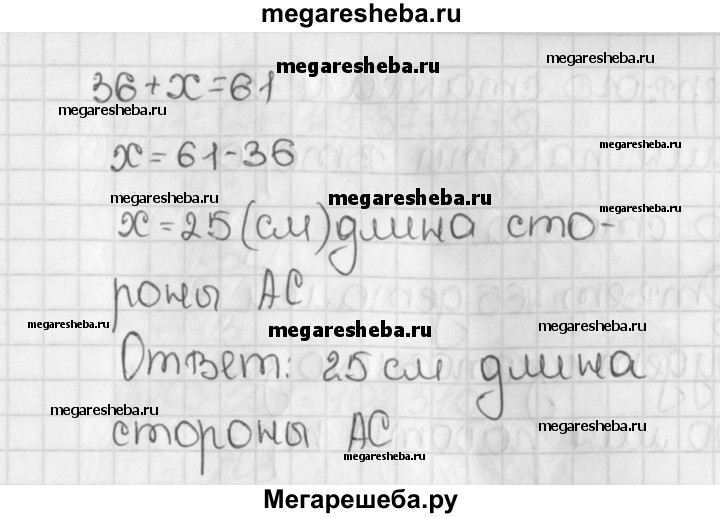 megaresheba.ru
megaresheba.ru
megaresheba.ru
36+x=61
megaresheba.ru
x=61-36
megaresheba.ru
megaresheba.ru
megaresheba.ru
megaresheba.ru
x=25(см)длина сто-
роны AC
megaresheba.ru
megaresheba.ru
megaresheba.ru
Ответ: 25 см длина
megaresheba.ru
стороны AC
megaresheba.ru
megaresheba.ru
Мегарешеба.ру